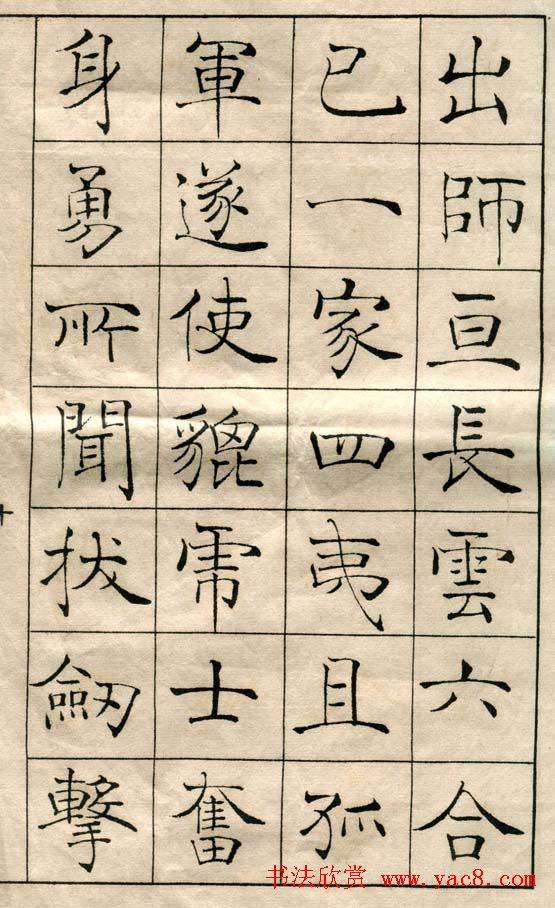 出師亘長雲六合
已一家四夷且孤
軍遂使貔虎士奮
身勇所聞拔劒擊
书法欣赏 www.yac8.com